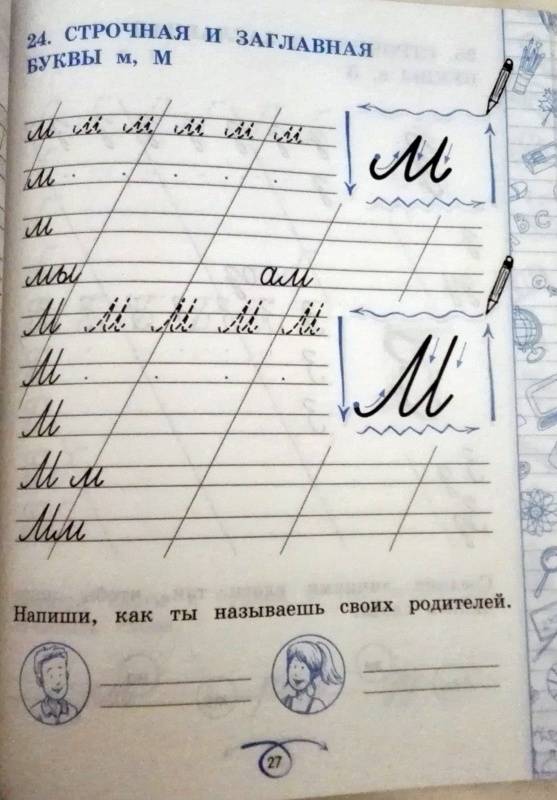 24. СТРОЧНАЯ И ЗАГЛАВНАЯ
БУКВЫ м, М
м м м м м м
м
м
м
мы ам
М М М М М
М
М
М
М м
Мм
Напиши, как ты называешь своих родителей.
27